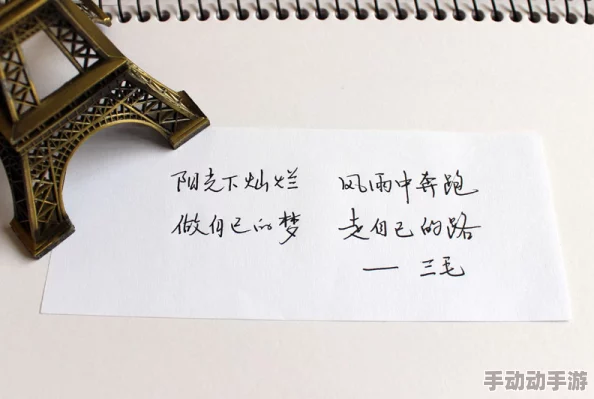 阳光下灿烂 风雨中奔跑
做自己的梦 走自己的路
— 三毛
手动动手游